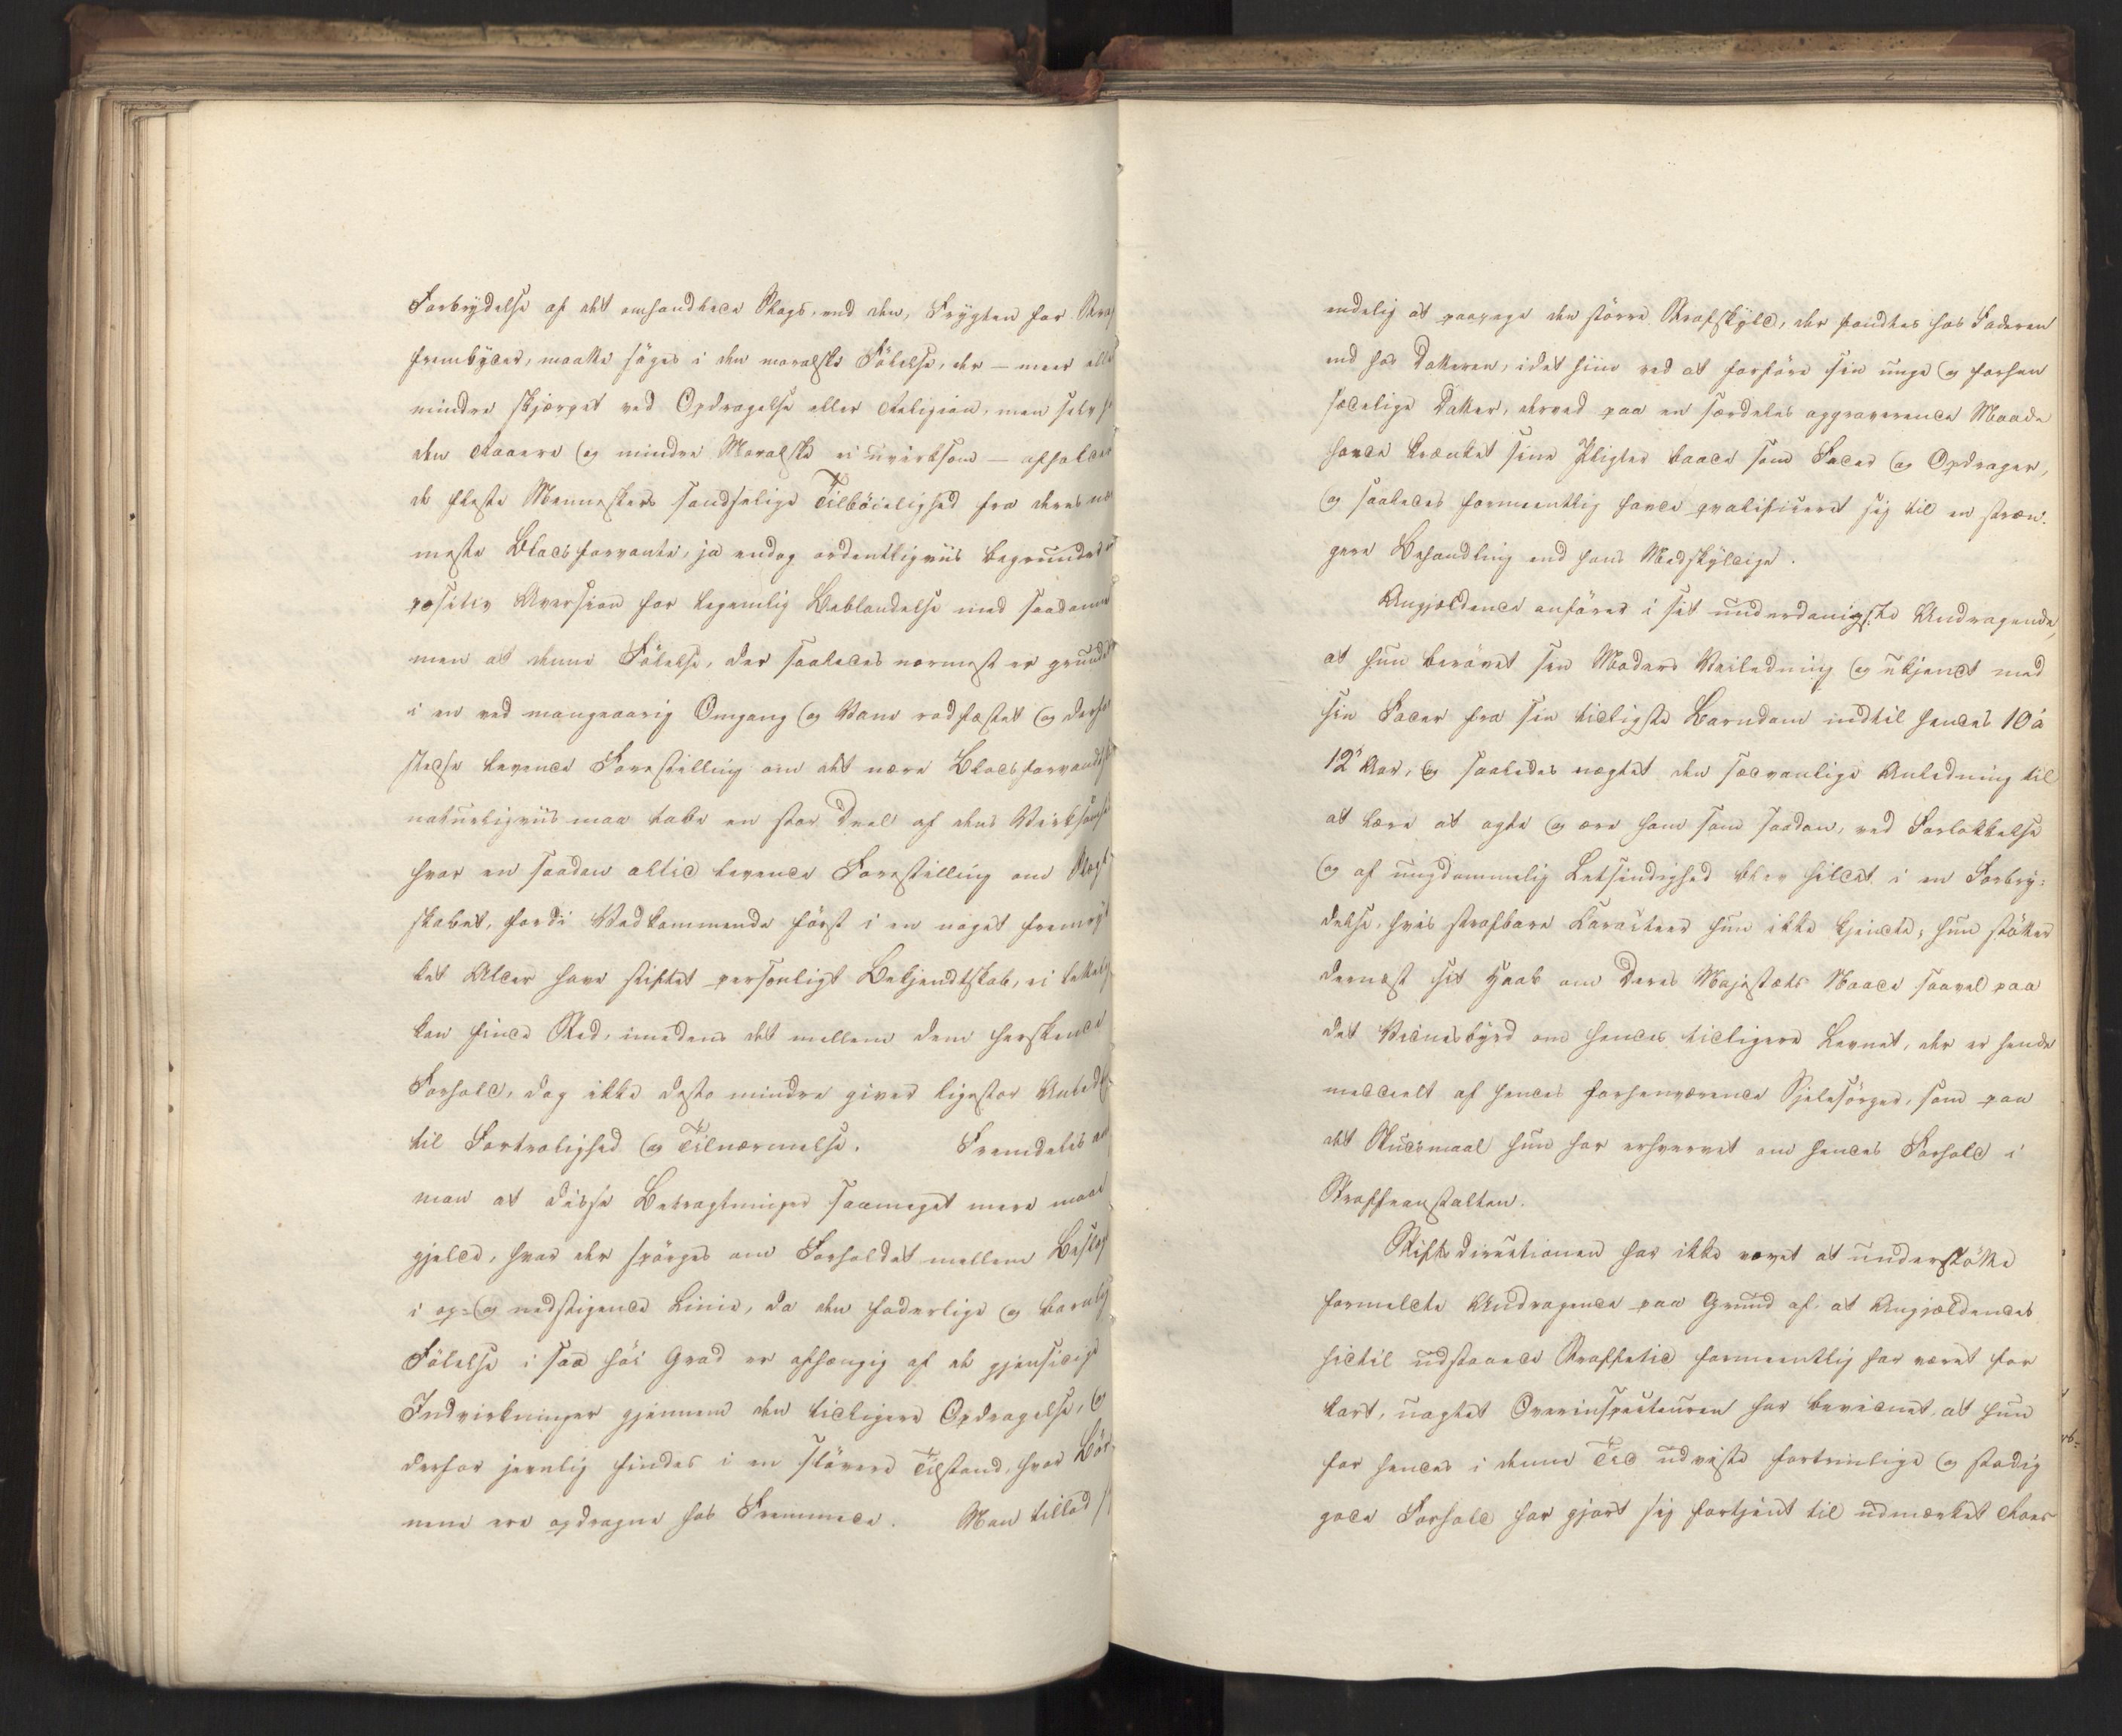 Forbrydelse af det omhandlede Slags, end den, Frygten for Straf
frembyder, maatte søges i den moralske Følelse, der — meer eller
mindre skjærpet ved Opdragelse eller Religion, men selv hos
den Raaere og mindre Moralske ei uvirksom — afholder
de fleste Menneskers sandselige Tilbøielighed fra deres nær-
meste Blodsforvante, ja endog ordentligviis begrunder en
positiv Aversion for legemlig Beblandelse med saadanne
men at denne Følelse, der saaledes nærmest er grundet
i en ved mangeaarig Omgang og Vane rodfæstet og derfor
stedse levende Forestilling om det nære Blodsforvandtskab
naturligviis maa tabe en stor Deel af dens Virksomhed
hvor en saadan altid levende Forestilling om Slægt-
skabet, fordi Vedkommende først i en noget fremryk-
ket Alder have stiftet personligt Bekjendtskab, ei lettelig
kan finde Sted, imedens det mellem dem herskende
Forhold, dog ikke desto mindre giver ligestor Anledn:
til Fortrolighed og Tilnærmelse. Fremdeles
man at disse Betragtninger saameget mere maae
gjelde, hvor der spørges om Forholdet mellem Beslægt
i op- og nedstigende Linie, da den faderlige og barnlig
Følelse i saa høi Grad er afhængig af de gjensidige
Indvirkninger gjennem den tidligere Opdragelse, og
derfor jevnlig findes i en sløvere Tilstand, hvor Bør-
nene ere opdragne hos Fremmede. Man tillod
endelig at paapege den større Strafskyld, der fandtes hos Faderen
end hos Datteren, idet hiin ved at forføre sin unge og forhen
sædelige Datter, derved paa en særdeles aggraverende Maade
havde krænket sine Pligter baade som Fader og Opdrager,
og saaledes formeentlig havde qvalificeret sig til en stræn-
gere Behandling end hans Medskyldige.
Angjældende anfører i sit underdanigste Andragende,
at hun berøvet sin Moders Veiledning og ukjendt med
sin Fader fra sin tidligste Barndom indtil hendes 10 à
12 Aar, og saaledes nægtet den sædvanlige Anledning til
at lære at agte og ære ham som saadan, ved Forlokkelse
og af ungdommelig Letsindighed blev hildet i en Forbry-
delse, hvis strafbare Karakteer hun ikke kjendte; hun støtter
dernæst sit Haab om Deres Majestæts Naade saavel paa
det Vidnesbyrd om hendes tidligere Levnet, der er hende
meddeelt af hendes forhenværende Sjelesørger, som paa
det Skudsmaal hun har erhvervet om hendes Forhold i
Straffeanstalten.
Stiftsdirectionen har ikke vovet at understøtte
formeldte Andragende paa Grund af at Angjældendes
hidtil udstaaede Straffetid formeentlig har været for
kort, uagtet Overinspecteuren har bevidnet, at hun
for hendes i denne Tid udviste fortrinlige og stadig
gode Forhold har gjort sig fortjent til udmærket Roes